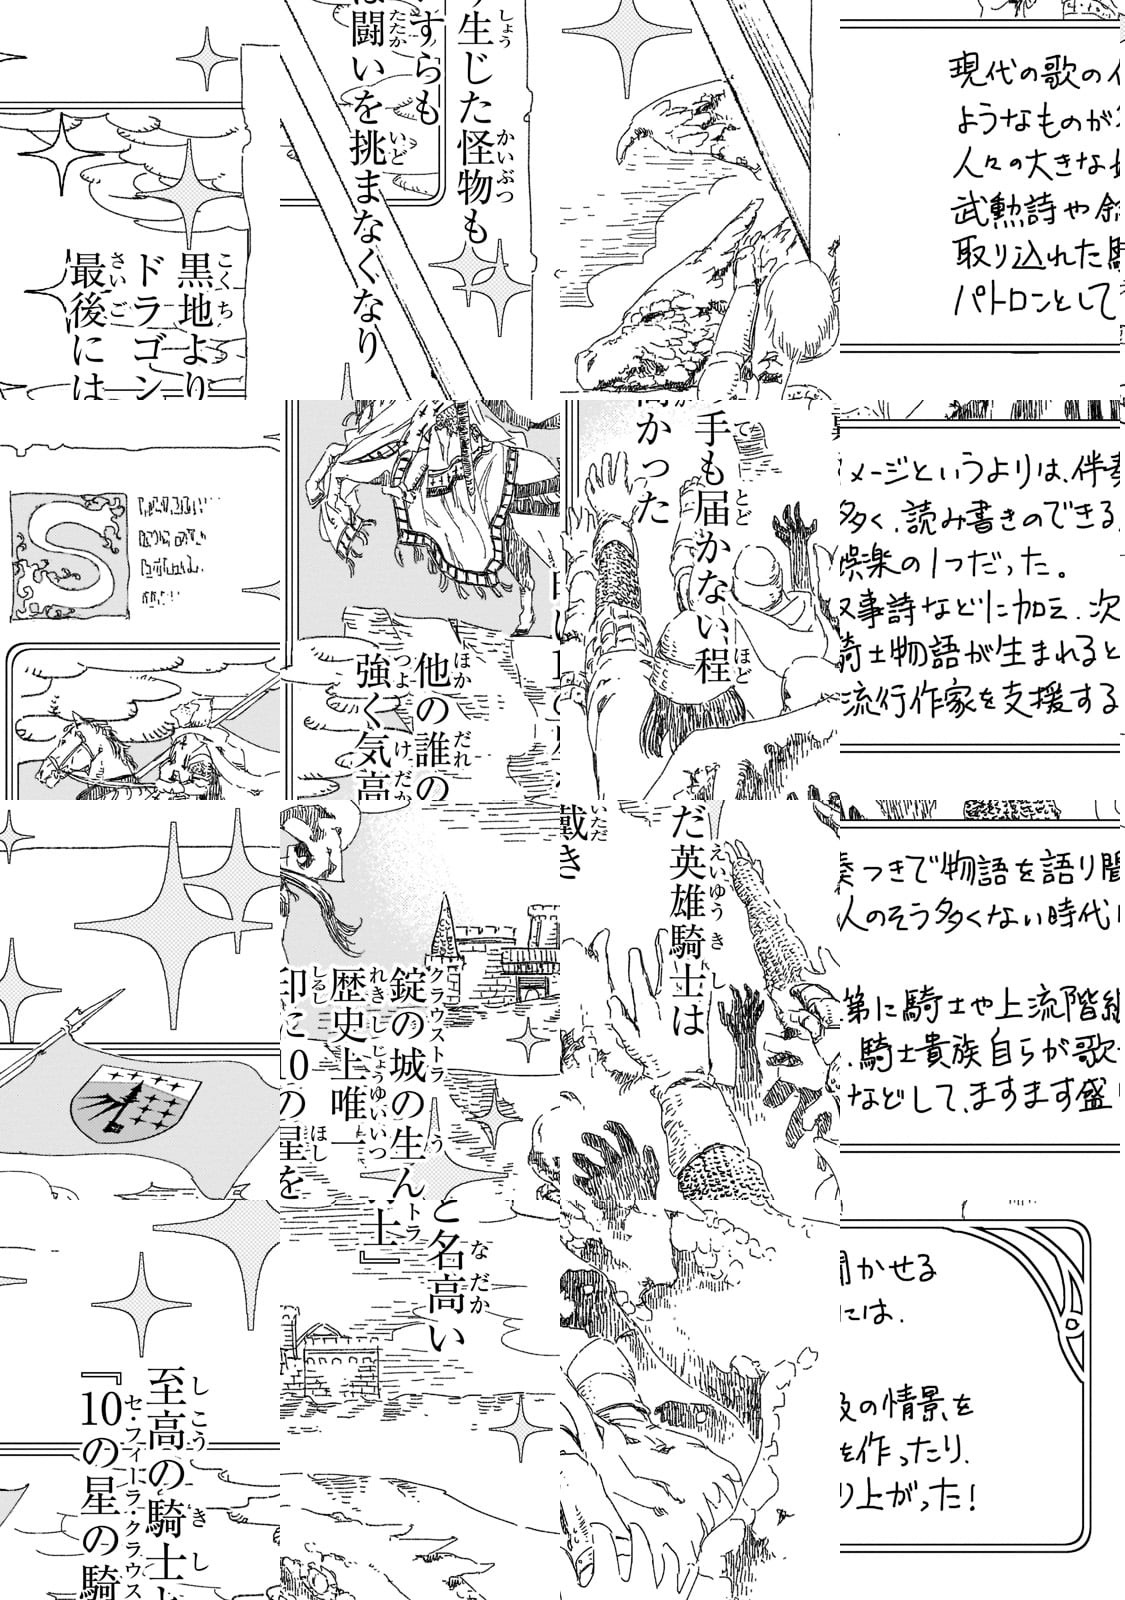 黒地より
ドラゴン
最後には
生じた怪物も
すらも
闘いを挑まなくなり
現代の歌の
ようなものが
人々の大きな
武勲詩や
取り込れた
パトロンとして
他の誰の
強く気高
手も届かない程
かった
メージというよりは、伴
多く、読み書きのできる
楽の1つだった。
事詩などに加え、次
士物語が生まれると
流行作家を支援する
錠の城の生ん
歴史上唯一
印に10の星を
だ英雄騎士は
戴き
つきで物語を語り
人のそう多くない時代
第に騎士や上流階
、騎士貴族自らが歌
などして、ますます盛
至高の騎士と
『10の星の騎
と名高い
士』
かせる
には、
の情景を
を作ったり、
り上がった!